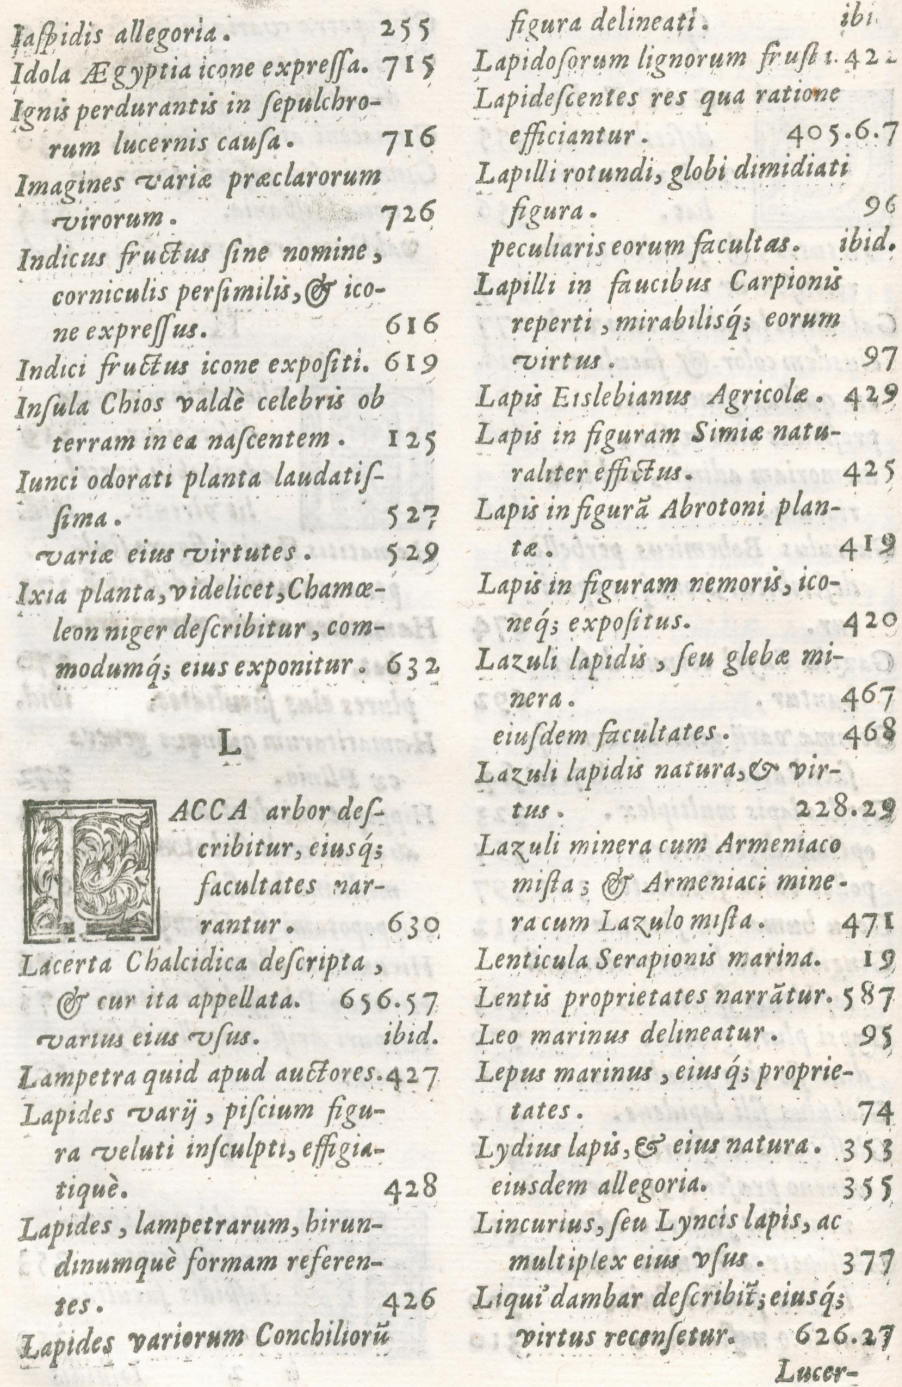 Iaſpidis allegoria. 255
Idola Ægyptia icone expreſſa. 715
Ignis perdurantis in ſepulchro-
rum lucernis cauſa. 716
Imagines variæ præclarorum
virorum. 726
Indicus fructus ſine nomine,
corniculis perſimilis, & ico-
ne expreſſus. 616
Indici fructus icone expoſiti. 619
Inſula Chios valdè celebris ob
terram in ea naſcentem. 125
Iunci odorati planta laudatiſ-
ſima. 527
variæ eius virtutes. 529
Ixia planta, videlicet, Chamœ-
leon niger deſcribitur, com-
modumq́; eius exponitur. 632
L
LACCA arbor deſ-
cribitur, eiusq́;
facultates nar-
rantur. 630
Lacerta Chalcidica deſcripta,
& cur ita appellata. 656.57
varius eius vſus. ibid.
Lampetra quid apud auctores. 427
Lapides varij, piſcium figu-
ra veluti inſculpti, effigia-
tiquè. 428
Lapides, lampetrarum, hirun-
dinumquè formam referen-
tes. 426
Lapides variorum Conchiliorũ
figura delineati.
Lapidoſorum lignorum
Lapideſcentes res qua ratione
efficiantur. 405.6.7
Lapilli rotundi, globi dimidiati
figura. 96
peculiaris eorum facultas. ibid.
Lapilli in faucibus Carpionis
reperti, mirabilisq́; eorum
virtus. 97
Lapis Eislebianus Agricolæ. 429
Lapis in figuram Simiæ natu-
raliter effictus. 425
Lapis in figurã Abrotoni plan-
tæ. 419
Lapis in figuram nemoris, ico-
neq́; expoſitus. 420
Lazuli lapidis, ſeu glebæ mi-
nera. 467
eiuſdem facultates. 468
Lazuli lapidis natura, & vir-
tus. 228.29
Lazuli minera cum Armeniaco
miſta; & Armeniaci mine-
ra cum Lazulo miſta. 471
Lenticula Serapionis marina. 19
Lentis proprietates narrãtur. 587
Leo marinus delineatur. 95
Lepus marinus, eiusq́; proprie-
tates. 74
Lydius lapis, & eius natura. 353
eiusdem allegoria. 355
Lincurius, ſeu Lyncis lapis, ac
multiplex eius vſus. 377
Liqui'dambar deſcribit̃; eiusq́;
virtus recenſetur. 626.27
Lucer-